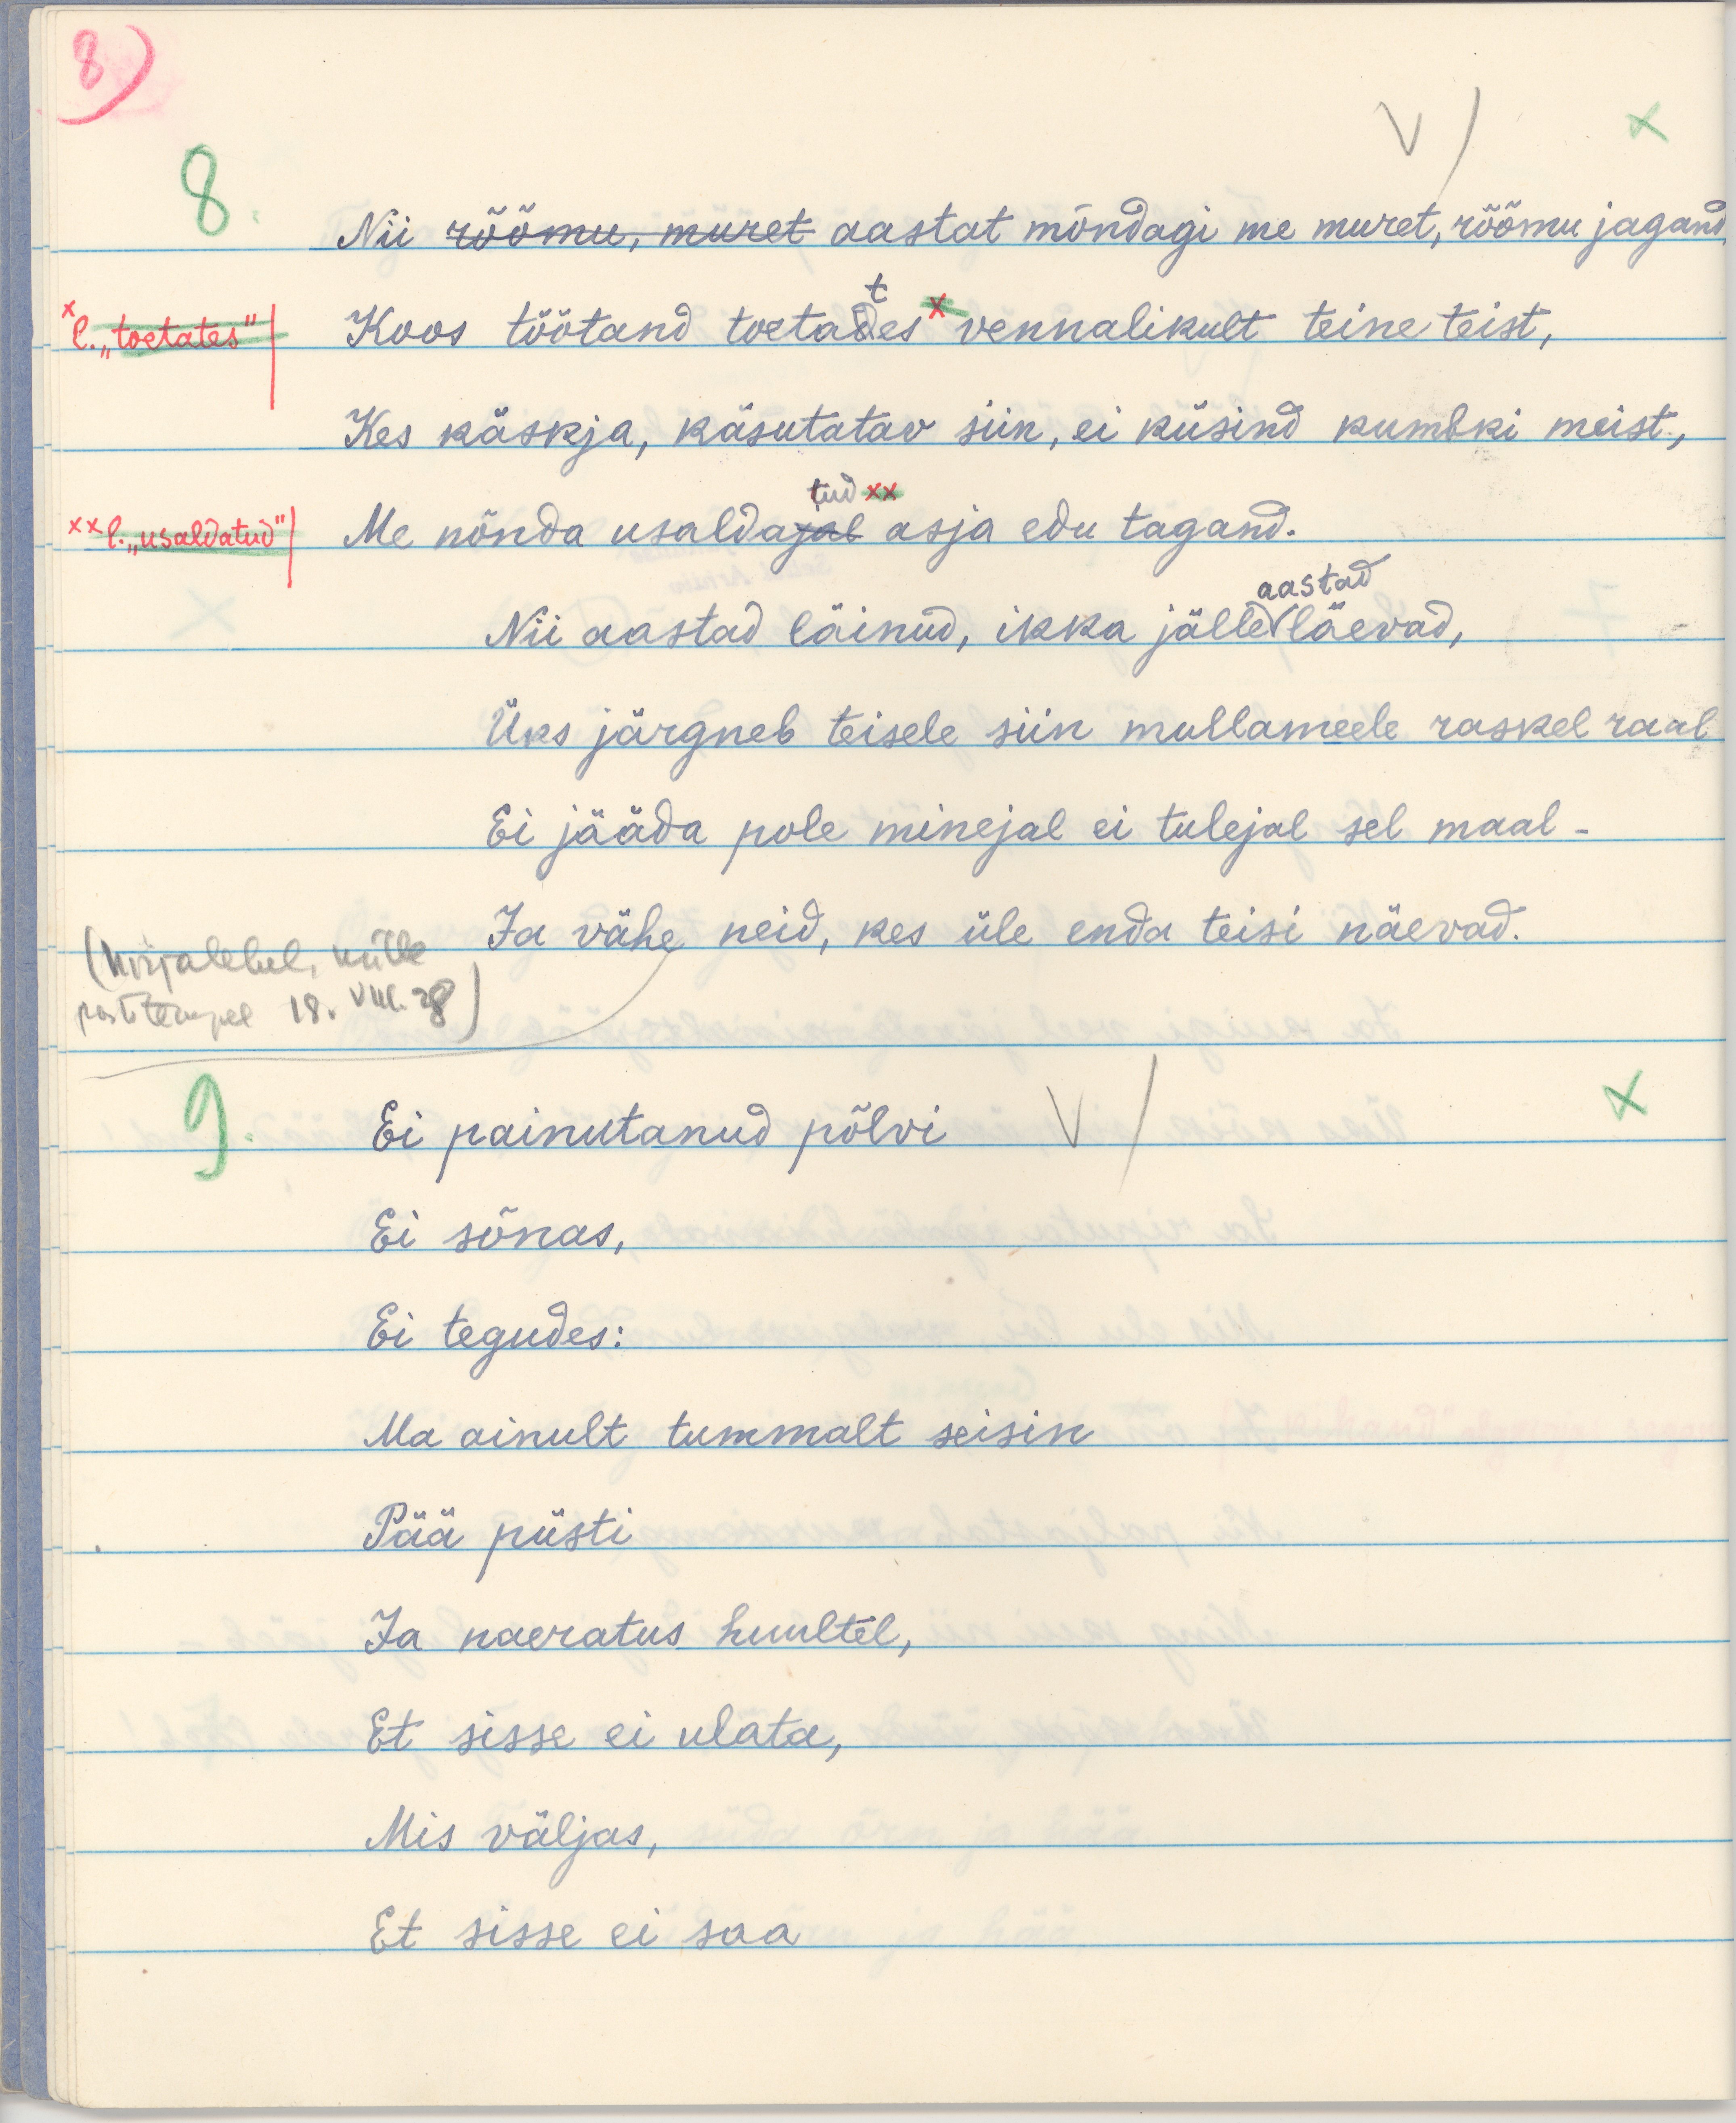 8)
V /
x
8.
Nii rõõmu, muret aastat mõndagi me muret, rõõmu jagand
x l. „toetates"
t
Koos töötand toetades x vennalikult teine teist,
Kes käskja, käsutatav siin, ei küsind kumbki meist,
tud xx
xx l. „usaldatud"
Me nõnda usaldajal asja edu tagand.
aastad
Nii aastad läinud, ikka jälle läevad,
Üks järgneb teisele siin mullameele raskel raal
Ei jääda pole minejal ei tulejal sel maal -
Ja vähe neid, kes üle enda teisi näevad.
(kirjalehel, mille
postitempel 18. VIII. 28)
9.
Ei painutanud põlvi
V /
x
Ei sõnas,
Ei tegudes:
Ma ainult tummalt seisin
Pää püsti
Ja naeratus huultel,
Et sisse ei ulata,
Mis väljas,
Et sisse ei saa